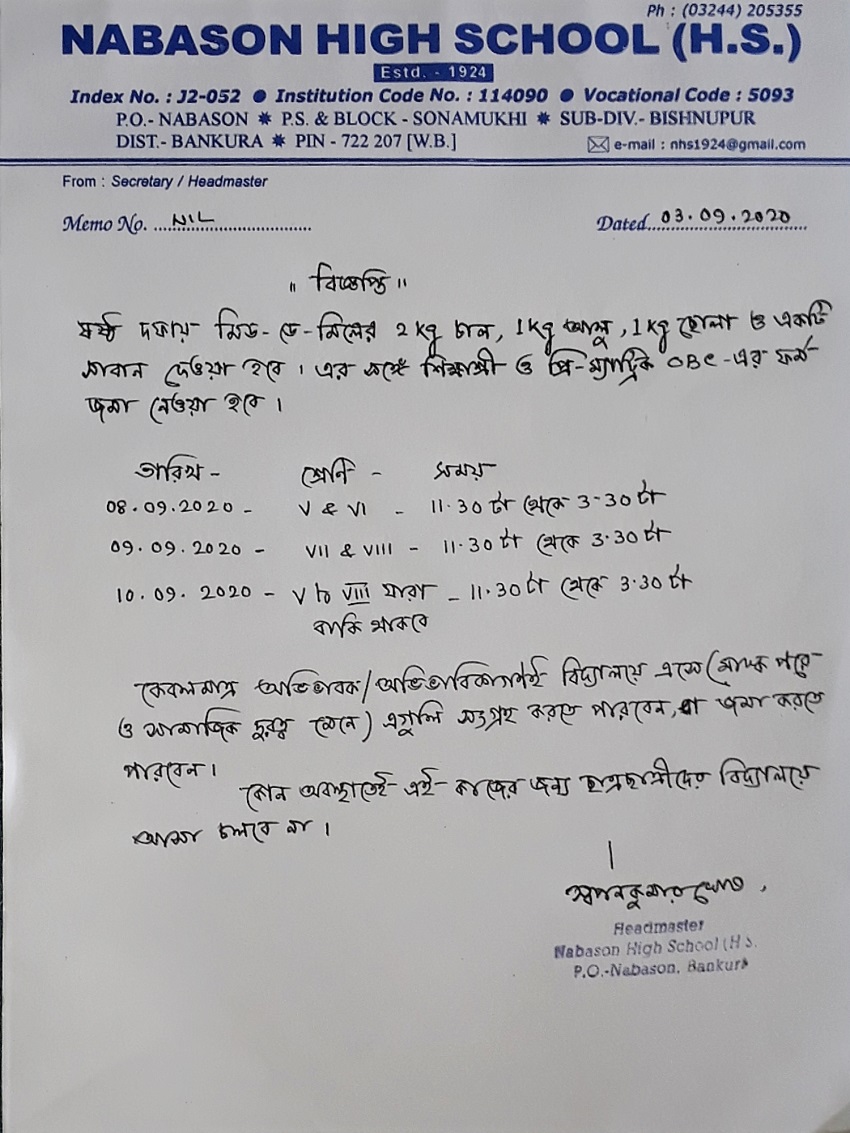 Ph : (03244) 205355
NABASON HIGH SCHOOL (H.S.)
Estd. - 1924
Index No. : J2-052 ● Institution Code No. : 114090 ● Vocational Code : 5093
P.O.- NABASON ✱ P.S. & BLOCK - SONAMUKHI ✱ SUB-DIV.- BISHNUPUR
DIST.- BANKURA ✱ PIN - 722 207 [W.B.]
e-mail : nhs1924@gmail.com
From : Secretary / Headmaster
Memo No. NIL
Dated 03.09.2020
" বিজ্ঞপ্তি "
ষষ্ঠ দফায় মিড-ডে-মিলের 2 kg চাল, 1kg আলু, 1kg ছোলা ও একটি
সাবান দেওয়া হবে। এর সঙ্গে শিক্ষাশ্রী ও প্রি-ম্যাট্রিক OBC-এর ফর্ম
জমা নেওয়া হবে।
তারিখ - শ্রেণি - সময়
08.09.2020 - V & VI - 11.30 টা থেকে 3-30 টা
09.09.2020 - VII & VIII - 11.30 টা থেকে 3.30 টা
10.09.2020 - V to VIII যারা - 11.30 টা থেকে 3.30 টা
বাকি থাকবে
কেবলমাত্র অভিভাবক/অভিভাবিকাগণই বিদ্যালয়ে এসে (মাস্ক পরে
ও সামাজিক দূরত্ব মেনে) এগুলি সংগ্রহ করতে পারবেন, বা জমা করতে
পারবেন।
কোন অবস্থাতেই এই কাজের জন্য ছাত্রছাত্রীদের বিদ্যালয়ে
আসা চলবে না।
স্বপনকুমার ঘোষ,
Headmaster
Nabason High School (H.S.
P.O.-Nabason, Bankura